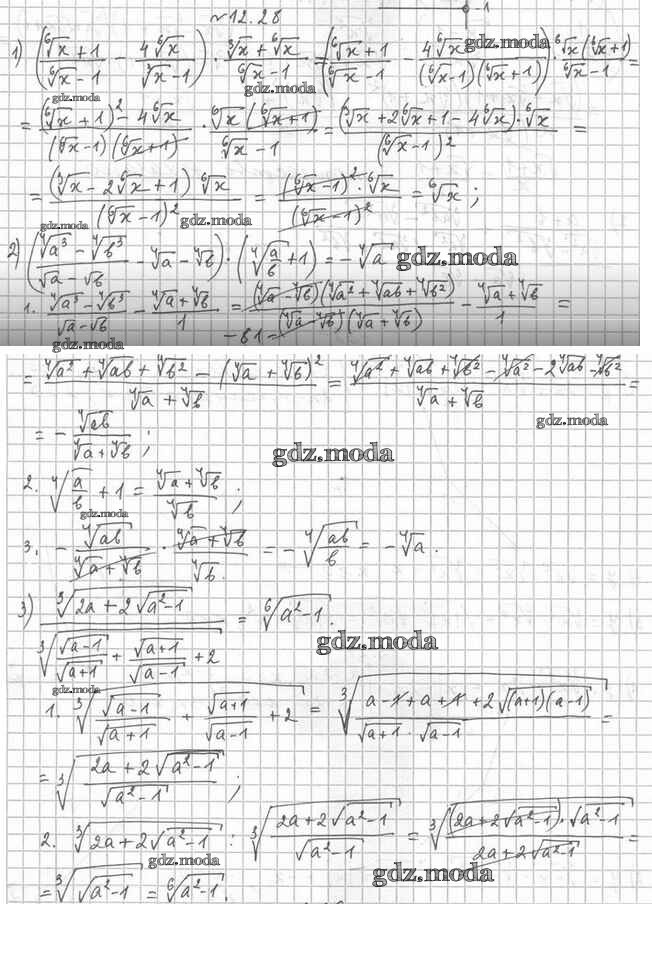 -1
№12.28
1) ((⁶√x + 1)/(⁶√x - 1) - 4⁶√x/(³√x - 1)) · (³√x + ⁶√x)/(⁶√x - 1) = ((⁶√x + 1)/(⁶√x - 1) - 4⁶√x/((⁶√x - 1)(⁶√x + 1))) · ⁶√x(⁶√x + 1)/(⁶√x - 1) =
gdz.moda gdz.moda
= ((⁶√x + 1)² - 4⁶√x)/((⁶√x - 1)(⁶√x + 1)) · ⁶√x(⁶√x + 1)/(⁶√x - 1) = (³√x + 2⁶√x + 1 - 4⁶√x) · ⁶√x/(⁶√x - 1)² =
= (³√x - 2⁶√x + 1) ⁶√x/(⁶√x - 1)² = (⁶√x - 1)² · ⁶√x/(⁶√x - 1)² = ⁶√x ;
gdz.moda gdz.moda
2) ((⁴√a³ - ⁴√b³)/(√a - √b) - ⁴√a - ⁴√b) · (⁴√(a/b) + 1) = - ⁴√a gdz.moda
1. (⁴√a³ - ⁴√b³)/(√a - √b) - (⁴√a + ⁴√b)/1 = (⁴√a - ⁴√b)(⁴√a² + ⁴√ab + ⁴√b²)/((⁴√a - ⁴√b)(⁴√a + ⁴√b)) - (⁴√a + ⁴√b)/1 =
gdz.moda -81-
= (⁴√a² + ⁴√ab + ⁴√b² - (⁴√a + ⁴√b)²)/(⁴√a + ⁴√b) = (⁴√a² + ⁴√ab + ⁴√b² - ⁴√a² - 2⁴√ab - ⁴√b²)/(⁴√a + ⁴√b) =
gdz.moda
= - ⁴√ab/(⁴√a + ⁴√b) ;
gdz.moda
2. ⁴√(a/b) + 1 = (⁴√a + ⁴√b)/⁴√b ;
gdz.moda
3. - ⁴√ab/(⁴√a + ⁴√b) · (⁴√a + ⁴√b)/⁴√b = - ⁴√(ab/b) = - ⁴√a .
3) ³√(2a + 2√(a² - 1))/³√(√(a - 1)/√(a + 1) + √(a + 1)/√(a - 1) + 2) = ⁶√(a² - 1) .
gdz.moda
gdz.moda
1. ³√(√(a - 1)/√(a + 1) + √(a + 1)/√(a - 1) + 2) = ³√((a - 1 + a + 1 + 2√((a + 1)(a - 1)))/(√(a + 1) · √(a - 1))) =
= ³√((2a + 2√(a² - 1))/√(a² - 1)) ;
2. ³√(2a + 2√(a² - 1)) : ³√((2a + 2√(a² - 1))/√(a² - 1)) = ³√((2a + 2√(a² - 1)) · √(a² - 1)/(2a + 2√(a² - 1))) =
gdz.moda
= ³√√(a² - 1) = ⁶√(a² - 1) .
gdz.moda